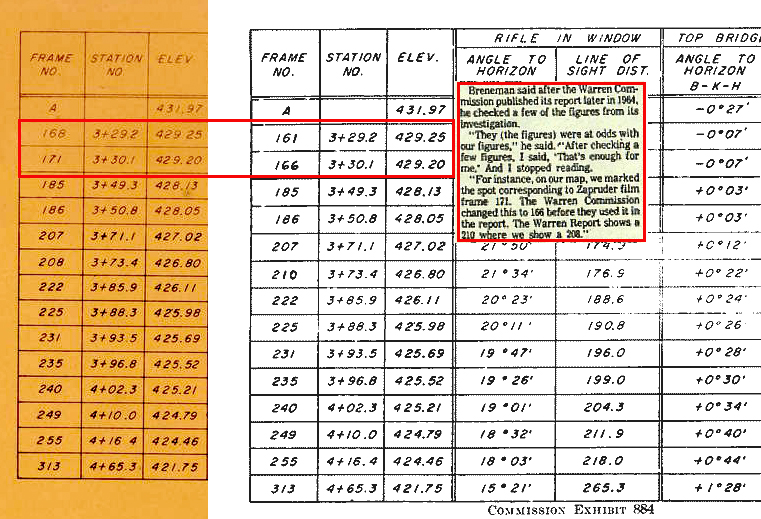 FRAME NO. STATION NO ELEV.
A 431.97
168 3+29.2 429.25
171 3+30.1 429.20
185 3+49.3 428.13
186 3+50.8 428.05
207 3+71.1 427.02
208 3+73.4 426.80
222 3+85.9 426.11
225 3+88.3 425.98
231 3+93.5 425.69
235 3+96.8 425.52
240 4+02.3 425.21
249 4+10.0 424.79
255 4+16 4 424.46
313 4+65.3 421.75
RIFLE IN WINDOW TOP BRIDGE
FRAME NO. STATION NO. ELEV. ANGLE TO HORIZON LINE OF SIGHT DIST. ANGLE TO HORIZON
B-K-H
A 431.97 -0°27'
161 3+29.2 429.25 -0°07'
166 3+30.1 429.20 -0°07'
185 3+49.3 428.13 +0°03'
186 3+50.8 428.05 +0°03'
207 3+71.1 427.02 21°50' 174.9 +0°12'
210 3+73.4 426.80 21°34' 176.9 +0°22'
222 3+85.9 426.11 20°23' 188.6 +0°24'
225 3+88.3 425.98 20°11' 190.8 +0°26'
231 3+93.5 425.69 19°47' 196.0 +0°28'
235 3+96.8 425.52 19°26' 199.0 +0°30'
240 4+02.3 425.21 19°01' 204.3 +0°34'
249 4+10.0 424.79 18°32' 211.9 +0°40'
255 4+16.4 424.46 18°03' 218.0 +0°44'
313 4+65.3 421.75 15°21' 265.3 +1°28'
Breneman said after the Warren Com-
mission published its report later in 1964,
he checked a few of the figures from its
investigation.
"They (the figures) were at odds with
our figures," he said. "After checking a
few figures, I said, 'That's enough for
me.' And I stopped reading.
"For instance, on our map, we marked
the spot corresponding to Zapruder film
frame 171. The Warren Commission
changed this to 166 before they used it in
the report. The Warren Report shows a
210 where we show a 208."
COMMISSION EXHIBIT 884